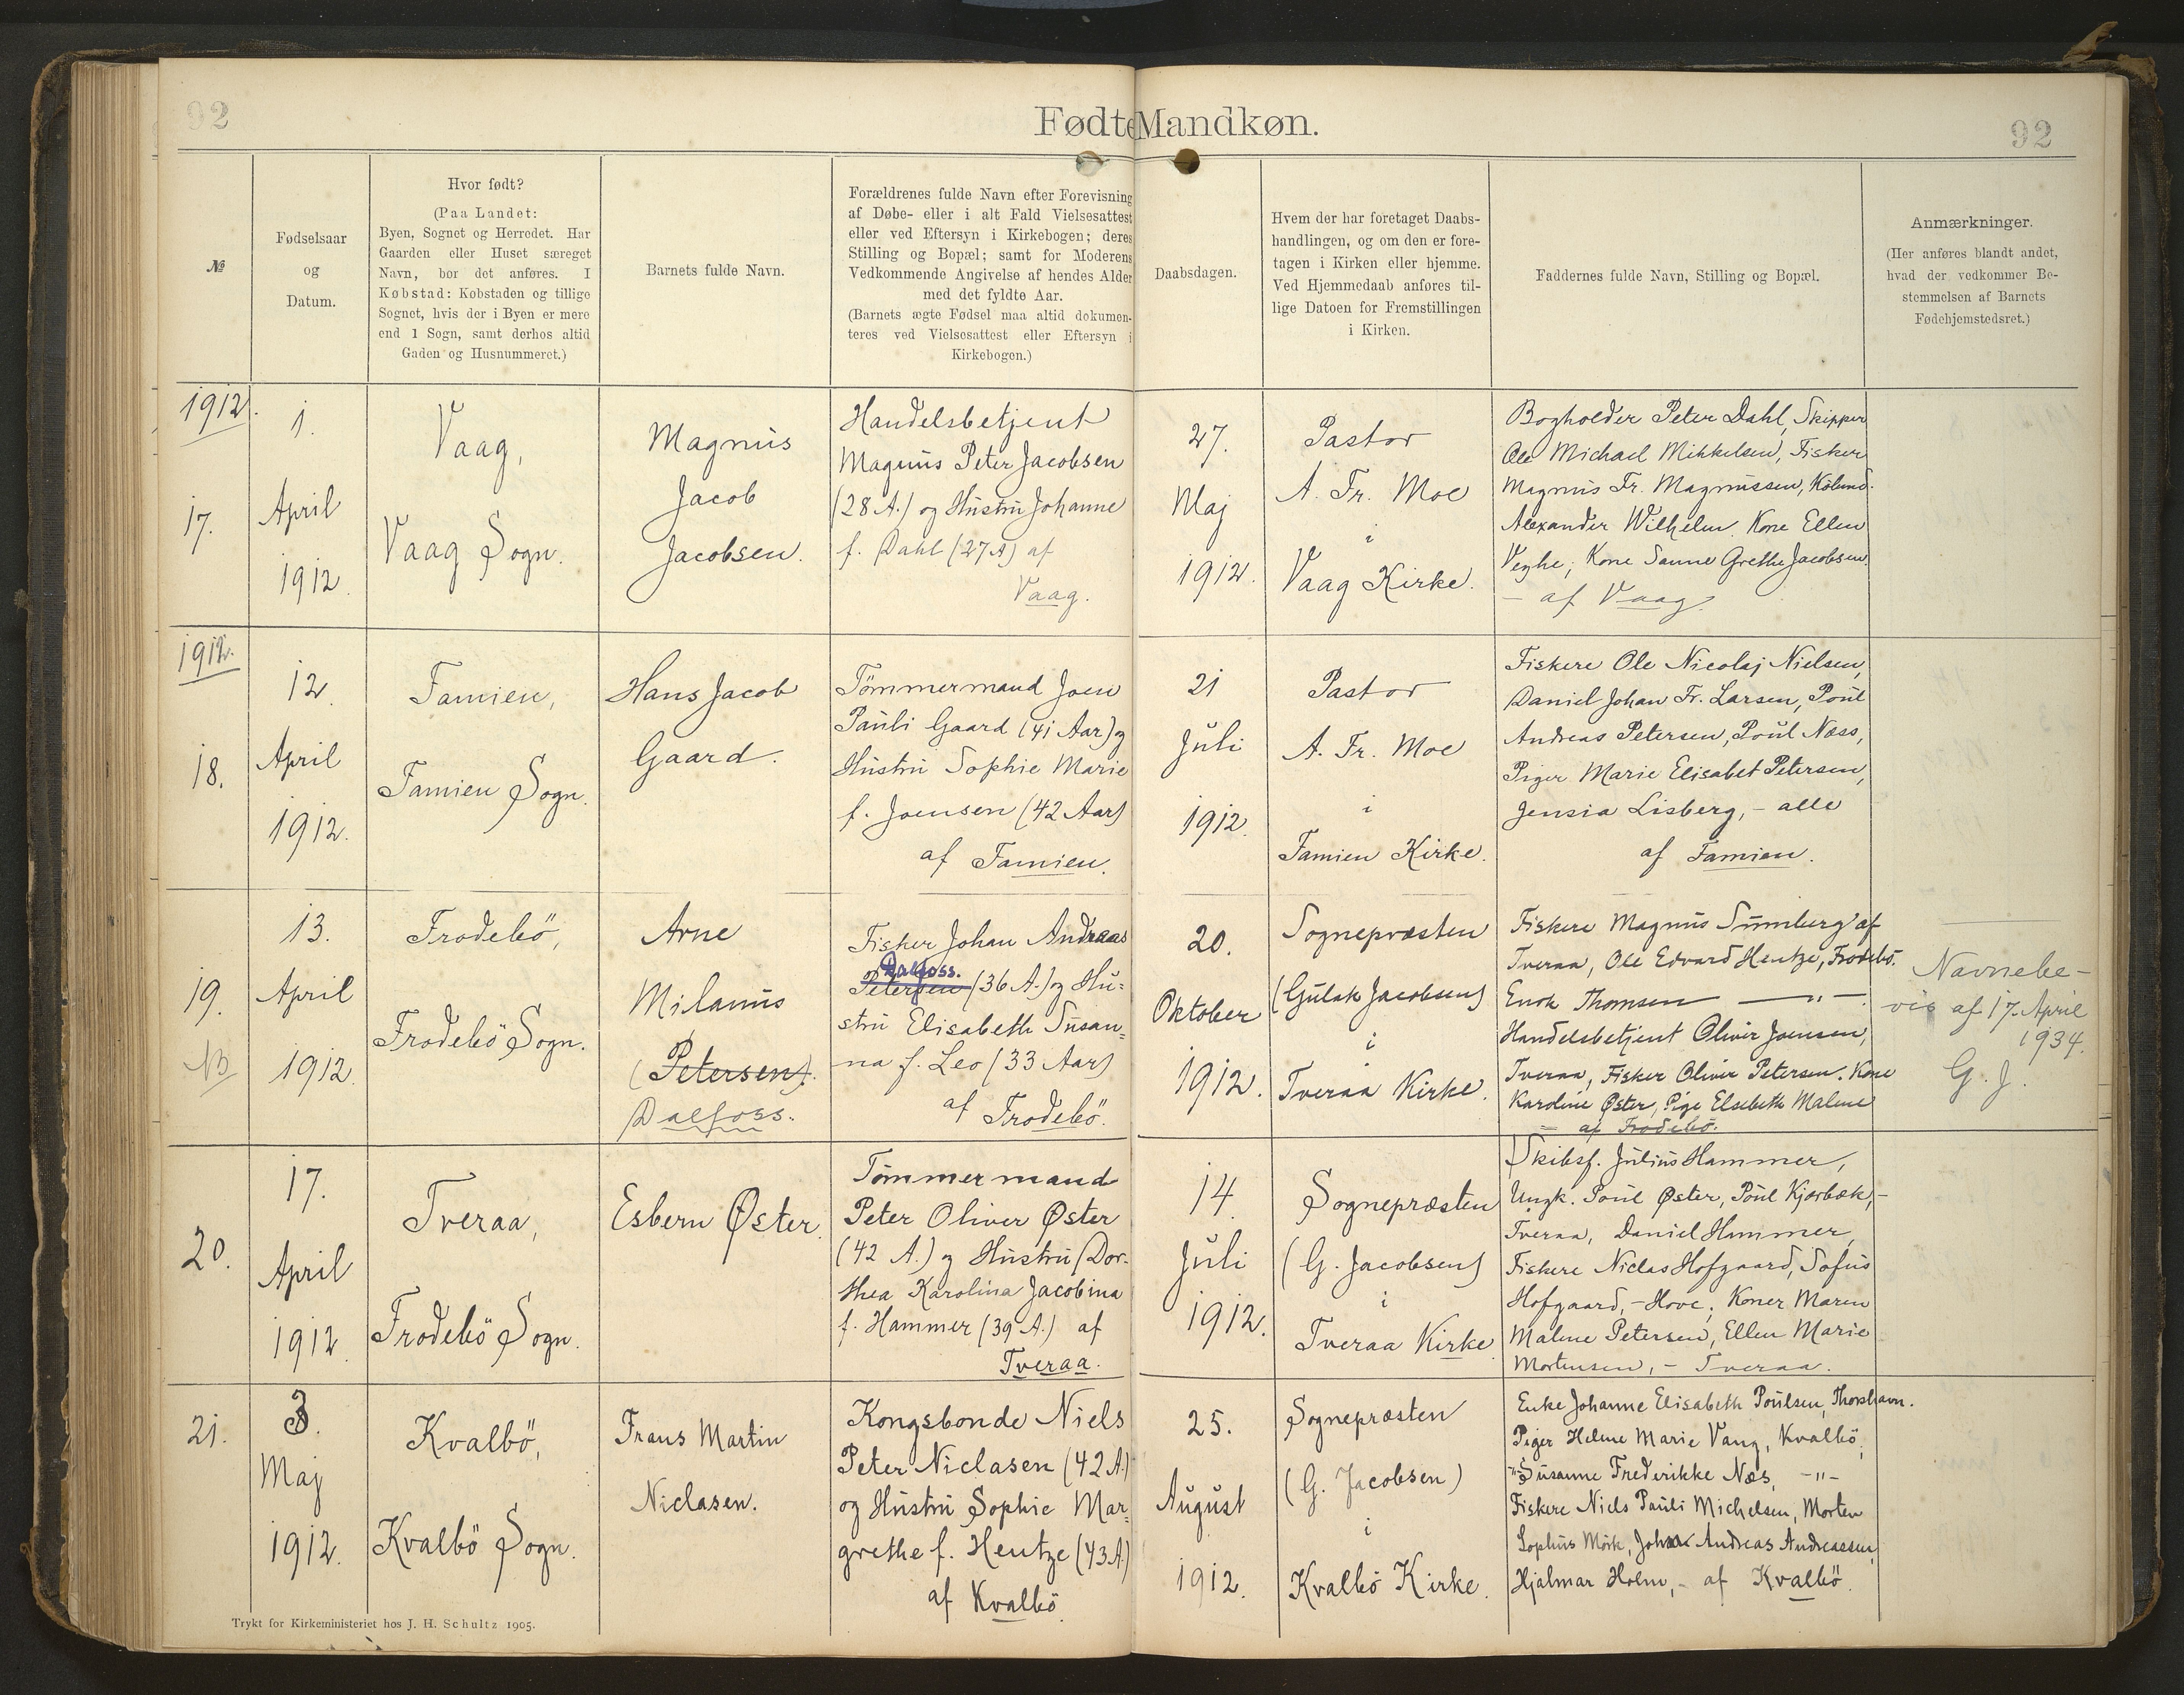 92
Fødte Mandkøn.
92
№
Fødselsaar
og
Datum.
Hvor født?
(Paa Landet:
Byen, Sognet og Herredet. Har
Gaarden eller Huset særeget
Navn, bør det anføres. I
Købstad: Købstaden og tillige
Sognet, hvis der i Byen er mere
end 1 Sogn, samt derhos altid
Gaden og Husnummeret.)
Barnets fulde Navn.
Forældrenes fulde Navn efter Forevisning
af Døbe- eller i alt Fald Vielsesattest
eller ved Eftersyn i Kirkebogen; deres
Stilling og Bopæl; samt for Moderens
Vedkommende Angivelse af hendes Alder
med det fyldte Aar.
(Barnets ægte Fødsel maa altid dokumen-
teres ved Vielsesattest eller Eftersyn i
Kirkebogen.)
Daabsdagen.
Hvem der har foretaget Daabs-
handlingen, og om den er fore-
tagen i Kirken eller hjemme.
Ved Hjemmedaab anføres til-
lige Datoen for Fremstillingen
i Kirken.
Faddernes fulde Navn, Stilling og Bopæl.
Anmærkninger.
(Her anføres blandt andet,
hvad der vedkommer Be-
stemmelsen af Barnets
Fødehjemstedsret.)
1912.
17.
1.
April
1912
Vaag,
Vaag Sogn.
Magnus
Jacob
Jacobsen.
Handelsbetjent
Magnus Peter Jacobsen
(28 A.) og Hustru Johanne
f. Dahl (27 A) af
Vaag.
27.
Maj
1912.
Pastor
A. Fr. Moe
i
Vaag Kirke.
Bogholder Peter Dahl, Skipper
Ole Michael Mikkelsen, Fisker
Magnus Fr. Magnussen, Købmd.
Alexander Wilhelm. Kone Ellen
Veghe, Kone Sanne Grethe Jacobsen
— af Vaag.
1912.
18.
12.
April
1912.
Famien,
Famien Sogn.
Hans Jacob
Gaard.
Tömmermand Joen
Pauli Gaard (41 Aar) og
Hustru Sophie Marie
f. Joensen (42 Aar)
af Famien.
21
Juli
1912.
Pastor
A. Fr. Moe
i
Famien Kirke.
Fiskere Ole Nicolaj Nielsen,
Daniel Johan Fr. Larsen, Poul
Andreas Petersen, Poul Næss,
Piger Marie Elisabet Petersen,
Jensia Lisberg, – alle
af Famien.
19.
NB
13.
April
1912.
Frodebö,
Frodebö Sogn.
Arne
Milanus
(Petersen).
Dalfoss.
Fisker Johan Andreas
Dalfoss.
Petersen (36 A.) og Hu=
stru Elisabeth Susan=
na f. Leo (33 Aar)
af Frodebö.
20.
Oktober
1912.
Sognepræsten
(Gulak Jacobsen)
i
Tveraa Kirke.
Fiskere Magnus Sumberg af
Tveraa, Ole Edvard Hentze, Frodebö.
Enok Thomsen — " —.
Handelsbetjent Oliver Joensen,
Tveraa, Fisker Oliver Petersen. Kone
Karoline Øster, Pige Elsebeth Malene
= af Frodebö.
Navnebe-
vis af 17. April
1934.
G. J.
20.
17.
April
1912
Tveraa,
Frodebö Sogn.
Esbern Øster.
Tömmermand
Peter Oliver Øster
(42 A.) og Hustru Dor-
thea Karolina Jacobina
f. Hammer (39 A.) af
Tveraa.
14
Juli
1912.
Sognepræsten
(G. Jacobsen)
i
Tveraa Kirke
Skibsf. Julius Hammer,
Ungk. Poul Øster, Poul Kjærbæk, –
Tveraa, Daniel Hammer,
Fiskere Niclas Hofgaard, Sofus
Hofgaard, – Hove; Koner Maren
Malene Petersen, Ellen Marie
Mortensen, – Tveraa.
21.
3.
Maj
1912.
Kvalbö,
Kvalbö Sogn.
Frans Martin
Niclasen.
Kongsbonde Niels
Peter Niclasen (42 A.)
og Hustru Sophie Mar=
grethe f. Hentze (43 A.)
af Kvalbö.
25.
August
1912.
Sognepræsten
(G. Jacobsen)
i
Kvalbö Kirke.
Enke Johanne Elisabeth Poulsen, Thorshavn.
Piger Helene Marie Vang, Kvalbö,
" Susanne Frederikke Næs, – " –
Fiskere Niels Pauli Michelsen, Morten
Sophus Mörk, Johan Andreas Andreassen,
Hjalmar Holm, – af Kvalbö.
Trykt for Kirkeministeriet hos J. H. Schultz 1905.